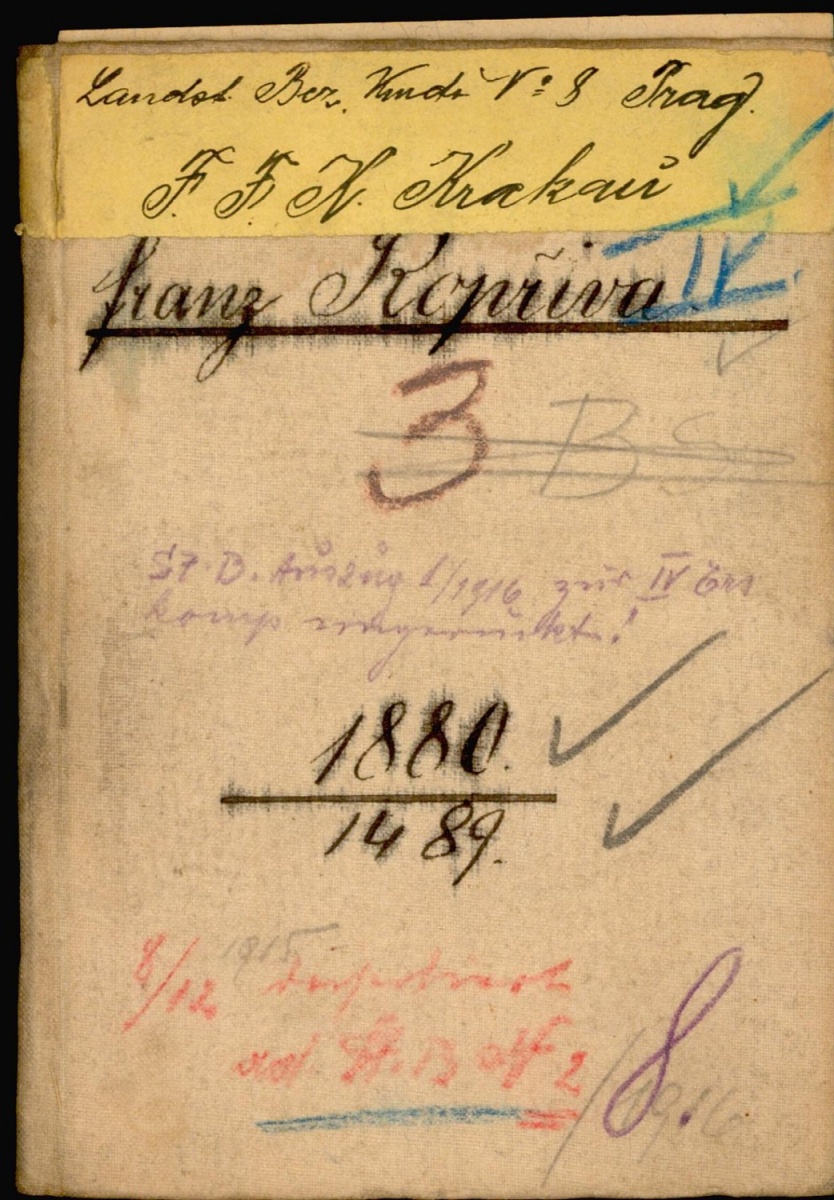 Landst. Bez. Kmdo No 8 Prag.
F. F. N. Krakau
IV.
Franz Kopřiva
3
B
St. B. Auszug 1/1916 zur IV Ers
komp eingerückt!
1880.
1489.
8/12 1915
ad St. B № 2 / 8.
1916